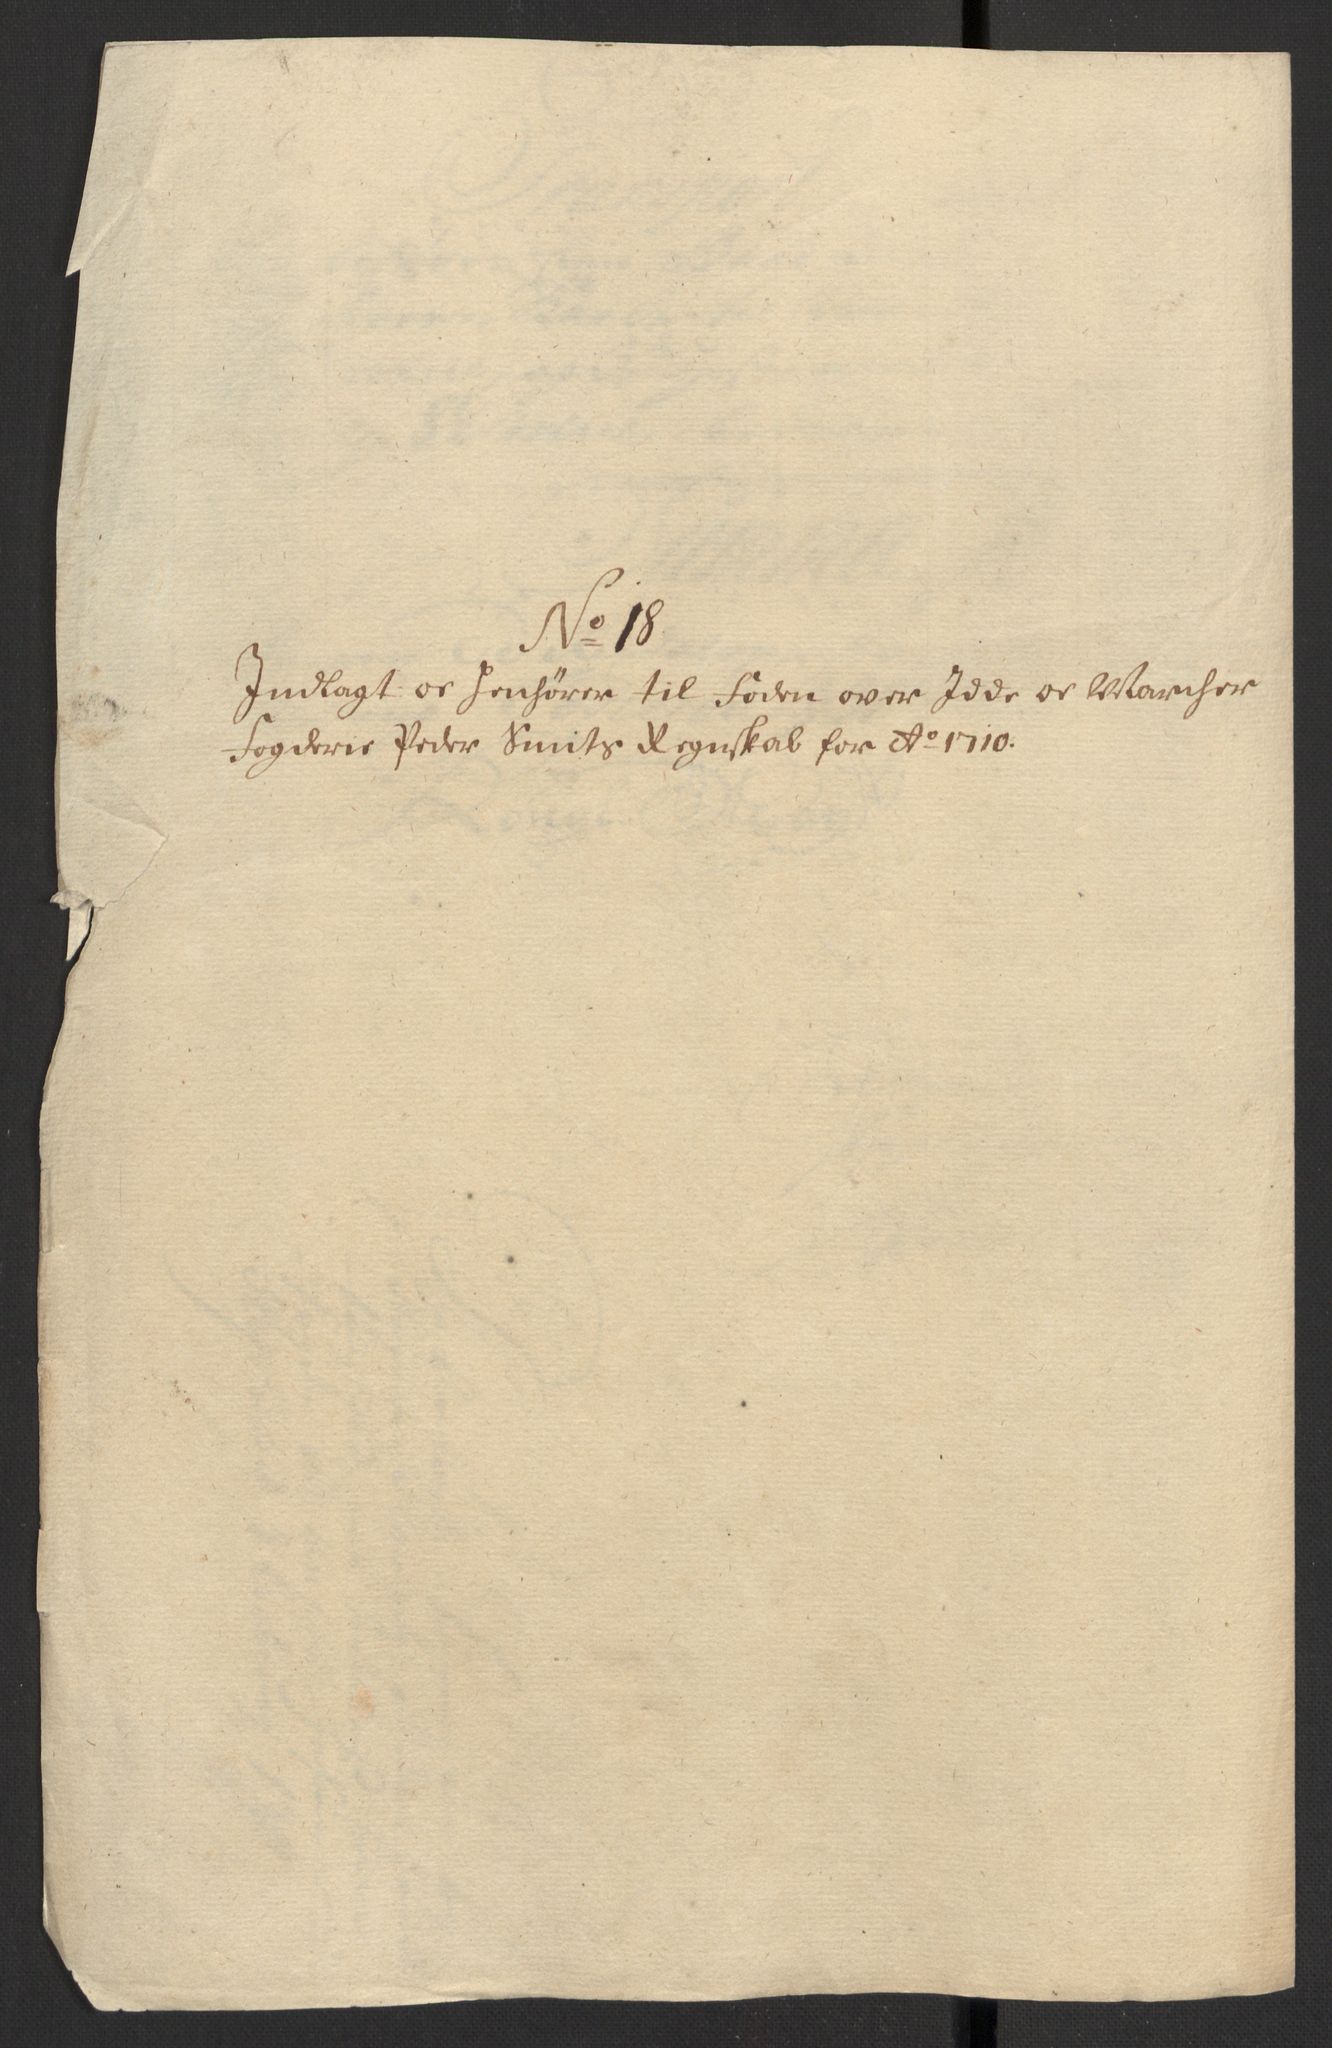 No 18
Indlagt oc henhører til Foden over Idde oc Marcher
Fogderie Peder Smits Regnskab for Ao 1710.